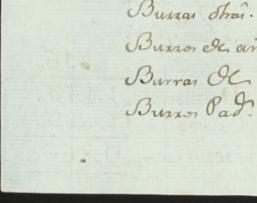 Burras chas.
Burros de an
Burras de
Burros Pad.